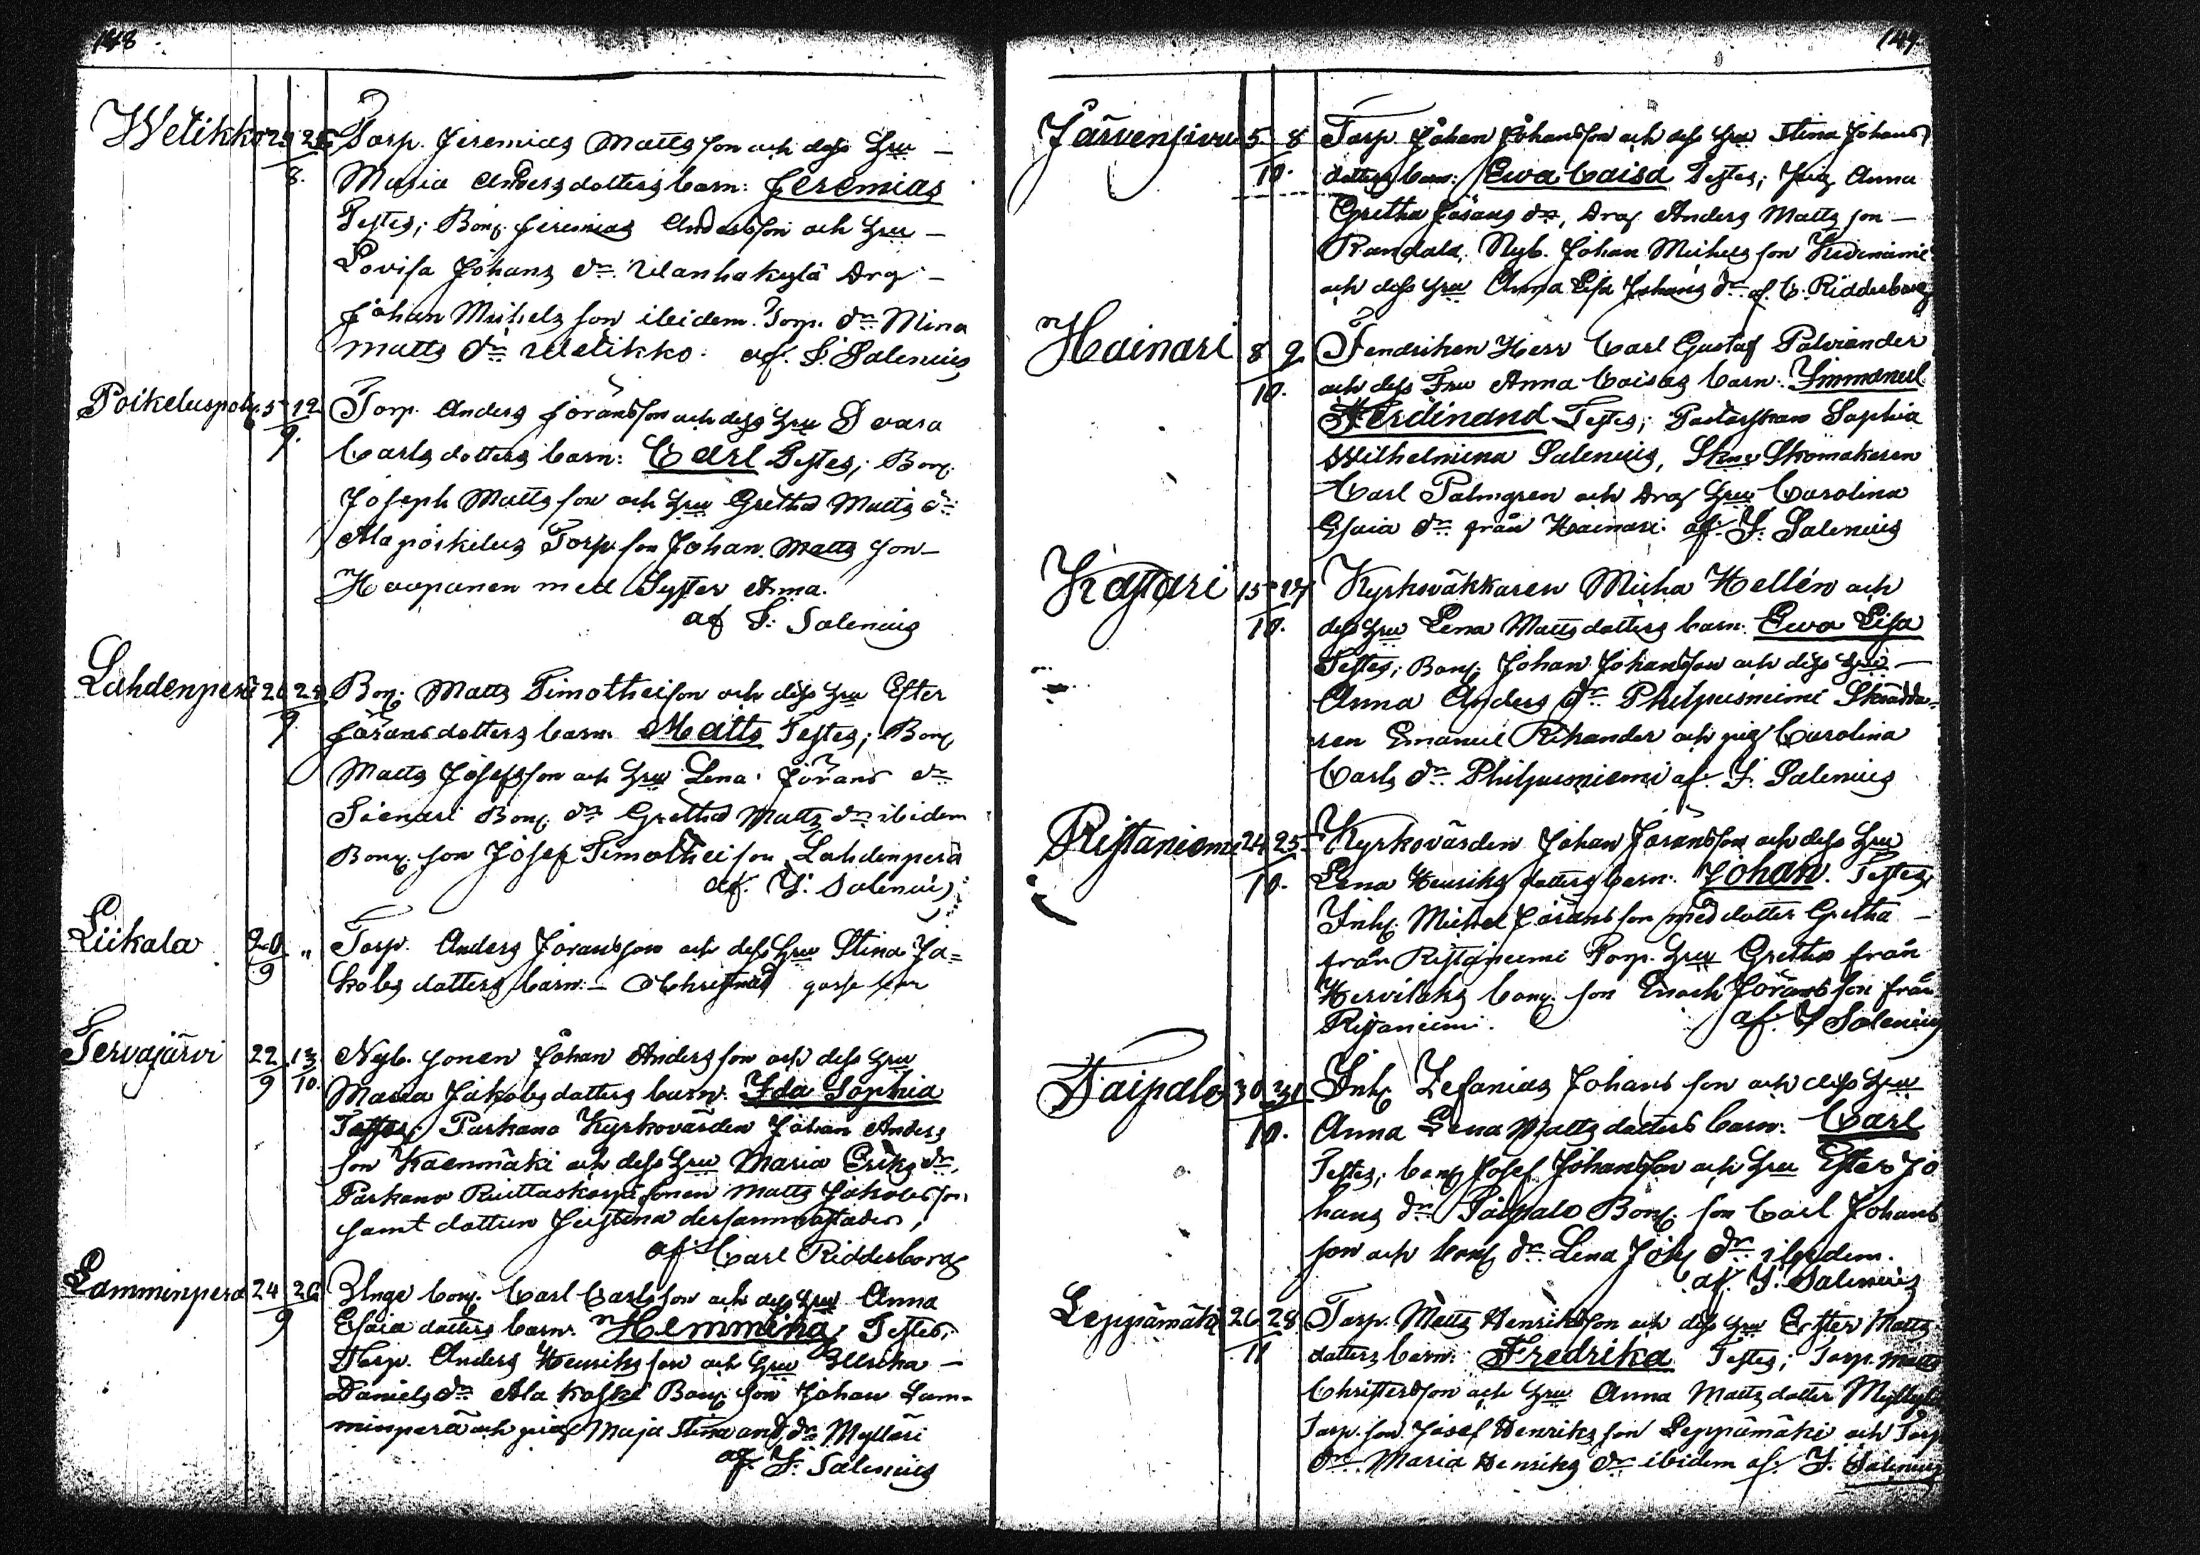 148
Welikko 24 25 Torp. Jeremias Matts son och dess Hru
8. Maria Andersdotters barn: Jeremias
Testes; Bond. Jeremias Andersson och Hru
Lovisa Johans dr. Wanhakylä Drg
Johan Michels son ibidem. Torp. dr Mina
Matts dr Welikko. af. F. Salenius
Poikeluspoh. 5 12 Torp. Anders Jöransson och dess Hru
9. Carlsdotters barn: Carl Testes; Bon.
Joseph Matts son och Hru Gretha Matts dr
Alapoikelus Torp. son Johan Matts son
Haapanen med Syster Anna.
af F. Salenius
Lahdenperä 26 28 Bon. Matts Timotheison och dess Hru Ester
9 Jöransdotters barn. Matts Testes; Bon.
Matts Josefsson och Hru Lena Jörans dr
Bon. dr Gretha Matts dr ibidem
Bon. son Josef Timothei son Lahdenperä
af. F. Salenius
Liikala 20 " Torp. Anders Jöransson och dess Hru Stina Ja=
9 kobs dotters barn. Ochristnad gosse barn
Tervajärvi 22 13 Nyb. sonen Johan Anders son och dess Hru
9 10. Maria Jakobs dotters barn. Ida Sophia
Testes; Parkano Kyrkovärden Johan Anders
son Kaenmäki och dess Hru Maria Eriks dr,
Parkano sonen Matts Jakobs son
samt dottren Justina dersammastädes,
af Carl Ridderborg
Lamminperä 24 26 Unge bon. Carl Carlsson och dess Hru Anna
9 Esaia dotters barn. Hemming Testes;
Torp. Anders Henriks son och Hru Ulrika
Daniels dr Ala koski Bon. son Johan Lam-
minperä och pig Maja Stina And. dr Mylläri
af. F. Salenius
149
Järvensivu 5 8 Torp. Johan Johansson och dess Hru Stina Johans
10. dotters barn: Ewa Caisa Testes; Pig. Anna
Gretha Jörans dr, Drag. Anders Matts son
Randala, Nyb. Johan Michels son
och dess Hru Anna Lisa Johans dr af. C. Ridderborg
Hainari 8 9 Fendriken Herr Carl Gustaf Palviander
10. och dess Fru Anna Caisas barn. Immanuel
Ferdinand Testes; Pastorskan Sophia
Wilhelmina Salenius, Skomakaren
Carl Palmgren och Drag Hru Carolina
Esaia dr från Hainari. af. F. Salenius
Kastari 15 17 Kyrkoväkkaren Micha Hellén och
10. dess Hru Lena Mattsdotters barn. Ewa Lisa
Testes; Bon. Johan Johansson och dess Hru
Anna Anders dr Philpusniemi Skrädda=
ren Emanuel Rikander och pig Carolina
Carls dr Philpusniemi af. F. Salenius
Ristaniemi 24 25 Kyrkovärden Johan Jöransson och dess Hru
10. Lena Henriks dotters barn. Johan. Testes;
Inh. Michel Jörans son med dotter Gretha
från Ristaniemi Torp. Hru Gretha från
bon. son Enoch Jörans son från
Ristaniemi. af. F Salenius
Taipale 30 31 Inh. Zefanias Johans son och dess Hru
10. Anna Lena Matts dotters barn. Carl
Testes; bon. Josef Johansson och Hru Ester Jo
hans dr Taipale Bon. son Carl Johans
son och bon. dr Lena Joh. dr ibidem.
af. F. Salenius
Leppämäki 26 28 Torp. Matts Henriksson och dess Hru Ester Matts
11 dotters barn: Fredrika Testes; Torp. Matts
Christersson och Hru Anna Matts dotter
Torp. son Josef Henriks son Leppämäki och Torp
dr Maria Henriks dr ibidem af. F. Salenius